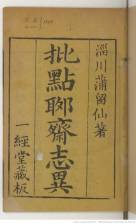 淄川蒲留仙著
批點聊齋志異
一經堂藏板